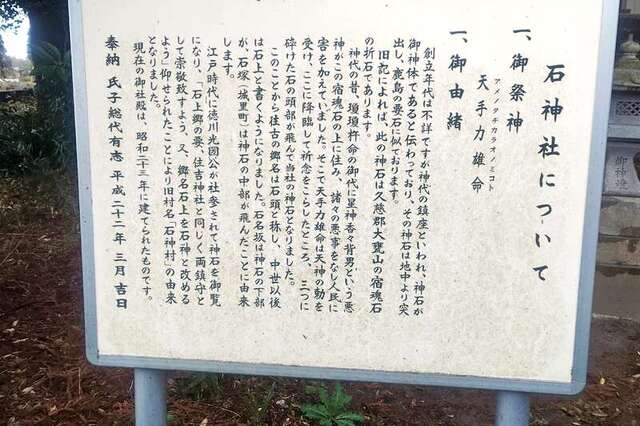 石神社について
一、御祭神
アメノテヂカラオノミコト
天手力雄命
一、御由緒
創立年代は不詳ですが神代の鎮座といわれ、神石が
御神体であると伝わっており、その神石は地中より突
出し、鹿島の要石に似ております。
旧記によれば、此の神石は久慈郡大甕山の宿魂石
の折石であります。
神代の昔、瓊瓊杵命の御代に星神香々背男という悪
神がこの宿魂石の上に住み、諸々の悪事をなし人民に
害を加えていました。そこで天手力雄命は天神の勅を
受け、ここに降臨して祈念をこらしたところ、三つに
砕けた石の頭部が飛んで当社の神石となりました。
このことから往古の郷名は石頭と称し、中世以後
は石上と書くようになりました。石名坂は神石の下部
が、石塚（城里町）は神石の中部が飛んだことに由来
します。
江戸時代に徳川光圀公が社参されて神石を御覧
になり、「石上郷の要、住吉神社と同じく両鎮守と
して崇敬致すよう、又、郷名石上を石神と改める
よう」仰せられたことにより旧村名「石神村」の由来
となりました。
現在の御社殿は、昭和二十三年に建てられたものです。
奉納 氏子総代有志 平成二十二年 三月 吉日
御神燈